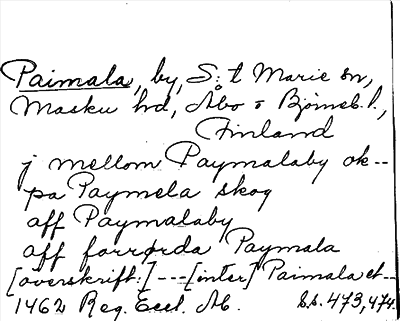 Paimala, by, S:t Marie sn,
Masku hd, Åbo o Björneb. l.,
Finland
j mellom Paymalaby ok --
pa Paymela skog
aff Paymalaby
aff forrørda Paymala
[överskrift:] --- [inter] Paimala et --
1462 Reg. Eccl. Ab. s.s. 473, 474.